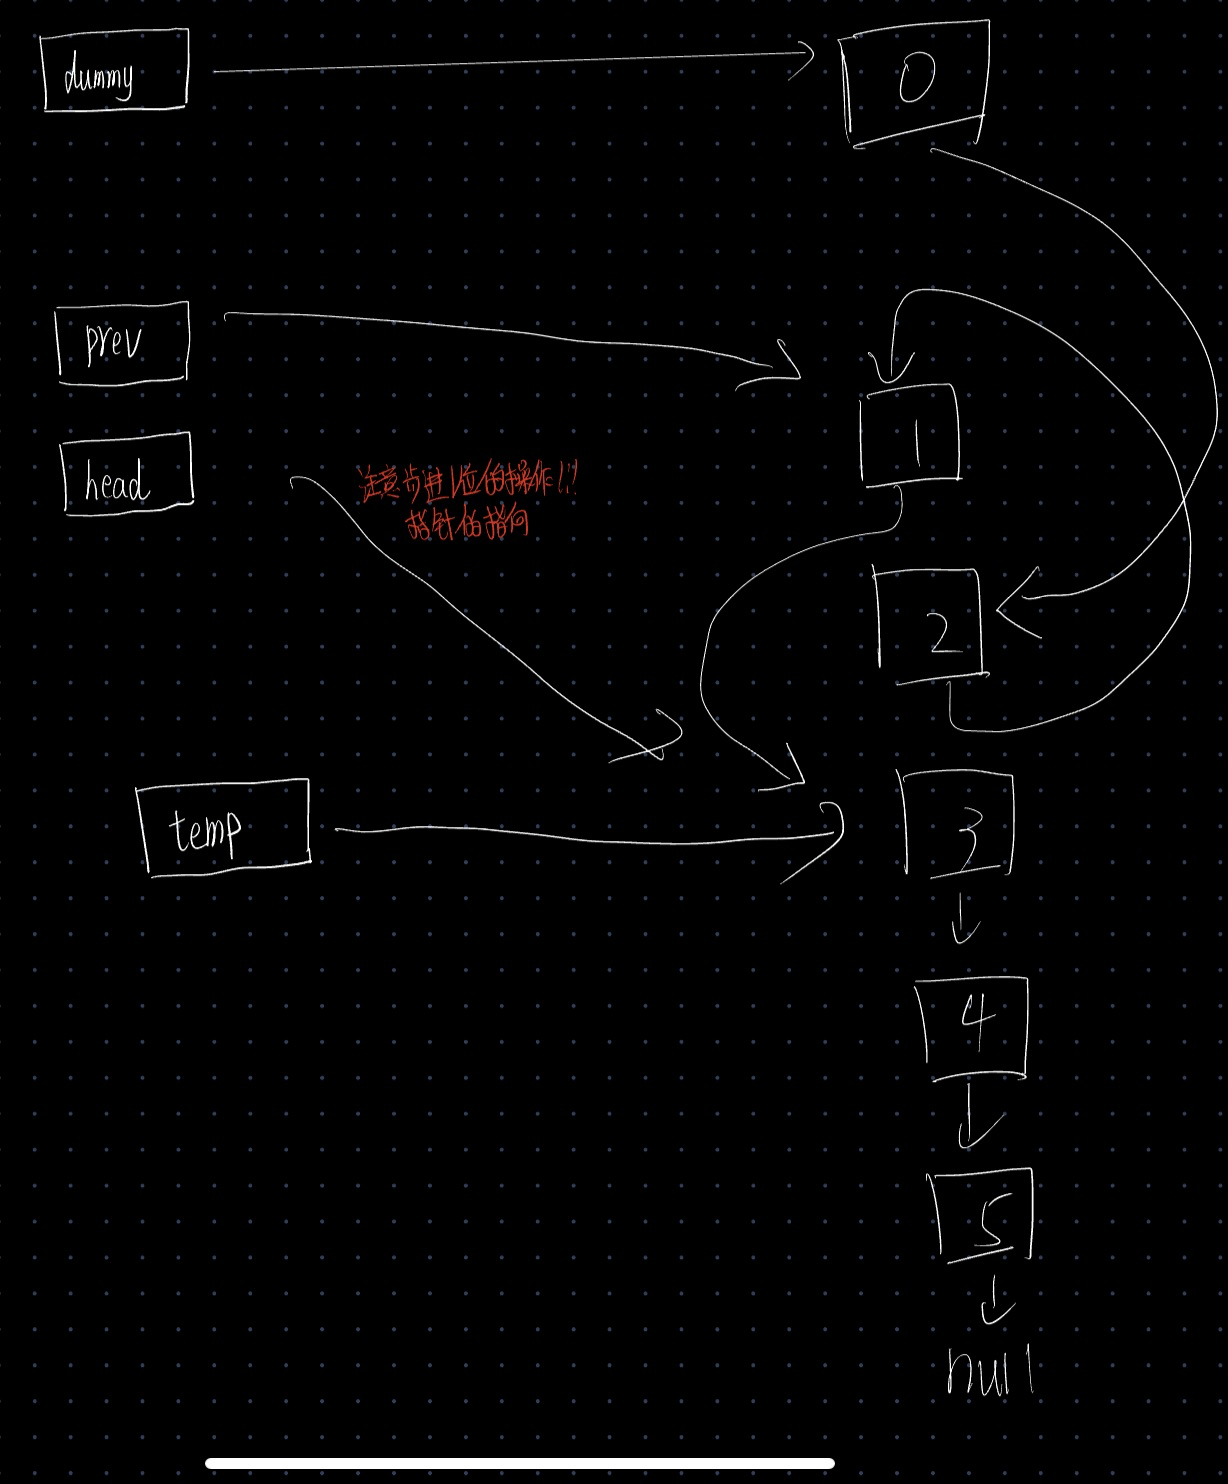 dummy
0
prev
1
head
注意步进1位的操作!!!
指针的指向
2
temp
3
4
5
null